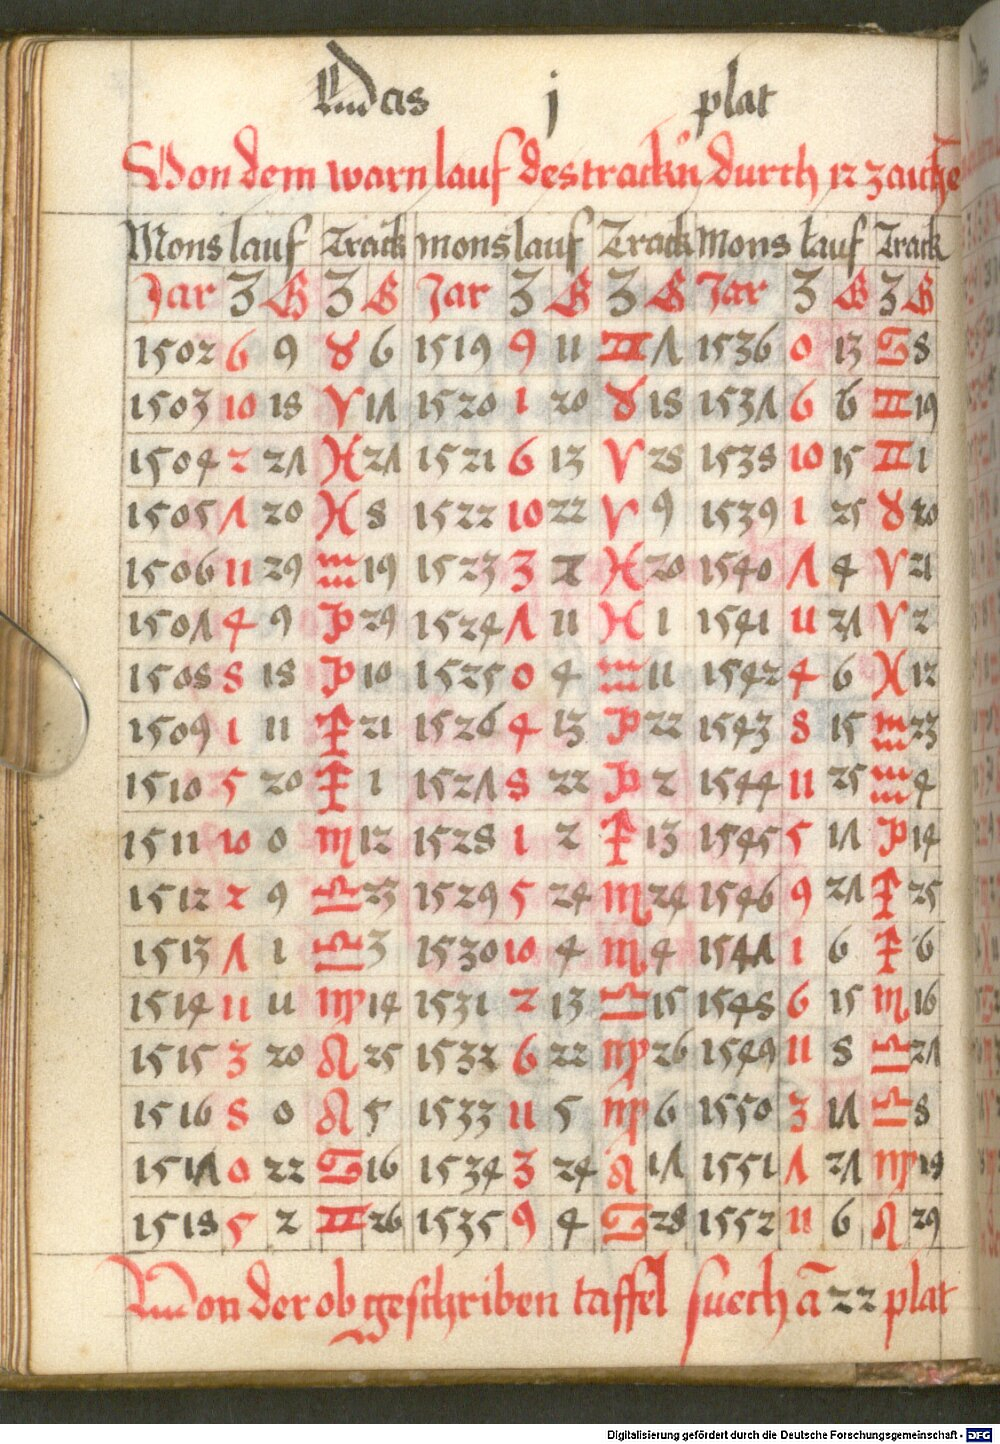 Das j plat
Von dem warn lauf des trackn durch 12 zaiche
Mons lauf Track mons lauf Track Mons lauf Track
Jar Z G Z G Jar Z G Z G Jar Z G Z G
1502 6 9 ♉ 6 1519 9 11 ♊ 7 1536 0 13 ♋ 8
1503 10 18 ♈ 17 1520 1 20 ♉ 18 1537 6 ♊ 19
1504 2 27 ♓ 27 1521 6 13 ♈ 28 1538 10 15 ♊ 1
1505 7 20 ♓ 8 1522 10 22 ♈ 9 1539 1 25 ♉ 20
1506 11 29 ♒ 19 1523 3 ♓ 20 1540 7 4 ♈ 21
1507 4 9 ♑ 29 1524 7 11 ♓ 1 1541 11 27 ♈ 2
1508 8 18 ♑ 10 1525 0 4 ♒ 11 1542 4 6 ♓ 12
1509 1 11 ♐ 21 1526 4 13 ♑ 22 1543 8 15 ♒ 23
1510 5 20 ♐ 1 1527 8 22 ♑ 2 1544 11 25 ♒ 4
1511 10 0 ♏ 12 1528 1 2 ♐ 13 1545 5 17 ♑ 14
1512 2 9 ♎ 23 1529 5 24 ♏ 24 1546 9 27 ♐ 25
1513 7 1 ♎ 3 1530 10 4 ♏ 4 1547 1 6 ♐ 6
1514 11 11 ♍ 14 1531 2 13 ♎ 15 1548 6 15 ♏ 16
1515 3 20 ♌ 25 1532 6 22 ♍ 26 1549 11 8 ♎ 27
1516 8 0 ♌ 5 1533 11 5 ♍ 6 1550 3 17 ♎ 8
1517 0 22 ♋ 16 1534 3 24 ♌ 17 1551 7 27 ♍ 18
1518 5 2 ♊ 26 1535 9 4 ♋ 28 1552 11 6 ♌ 29
Von der ob geschriben taffel suech ā 22 plat
Digitalisierung gefördert durch die Deutsche Forschungsgemeinschaft - DFG